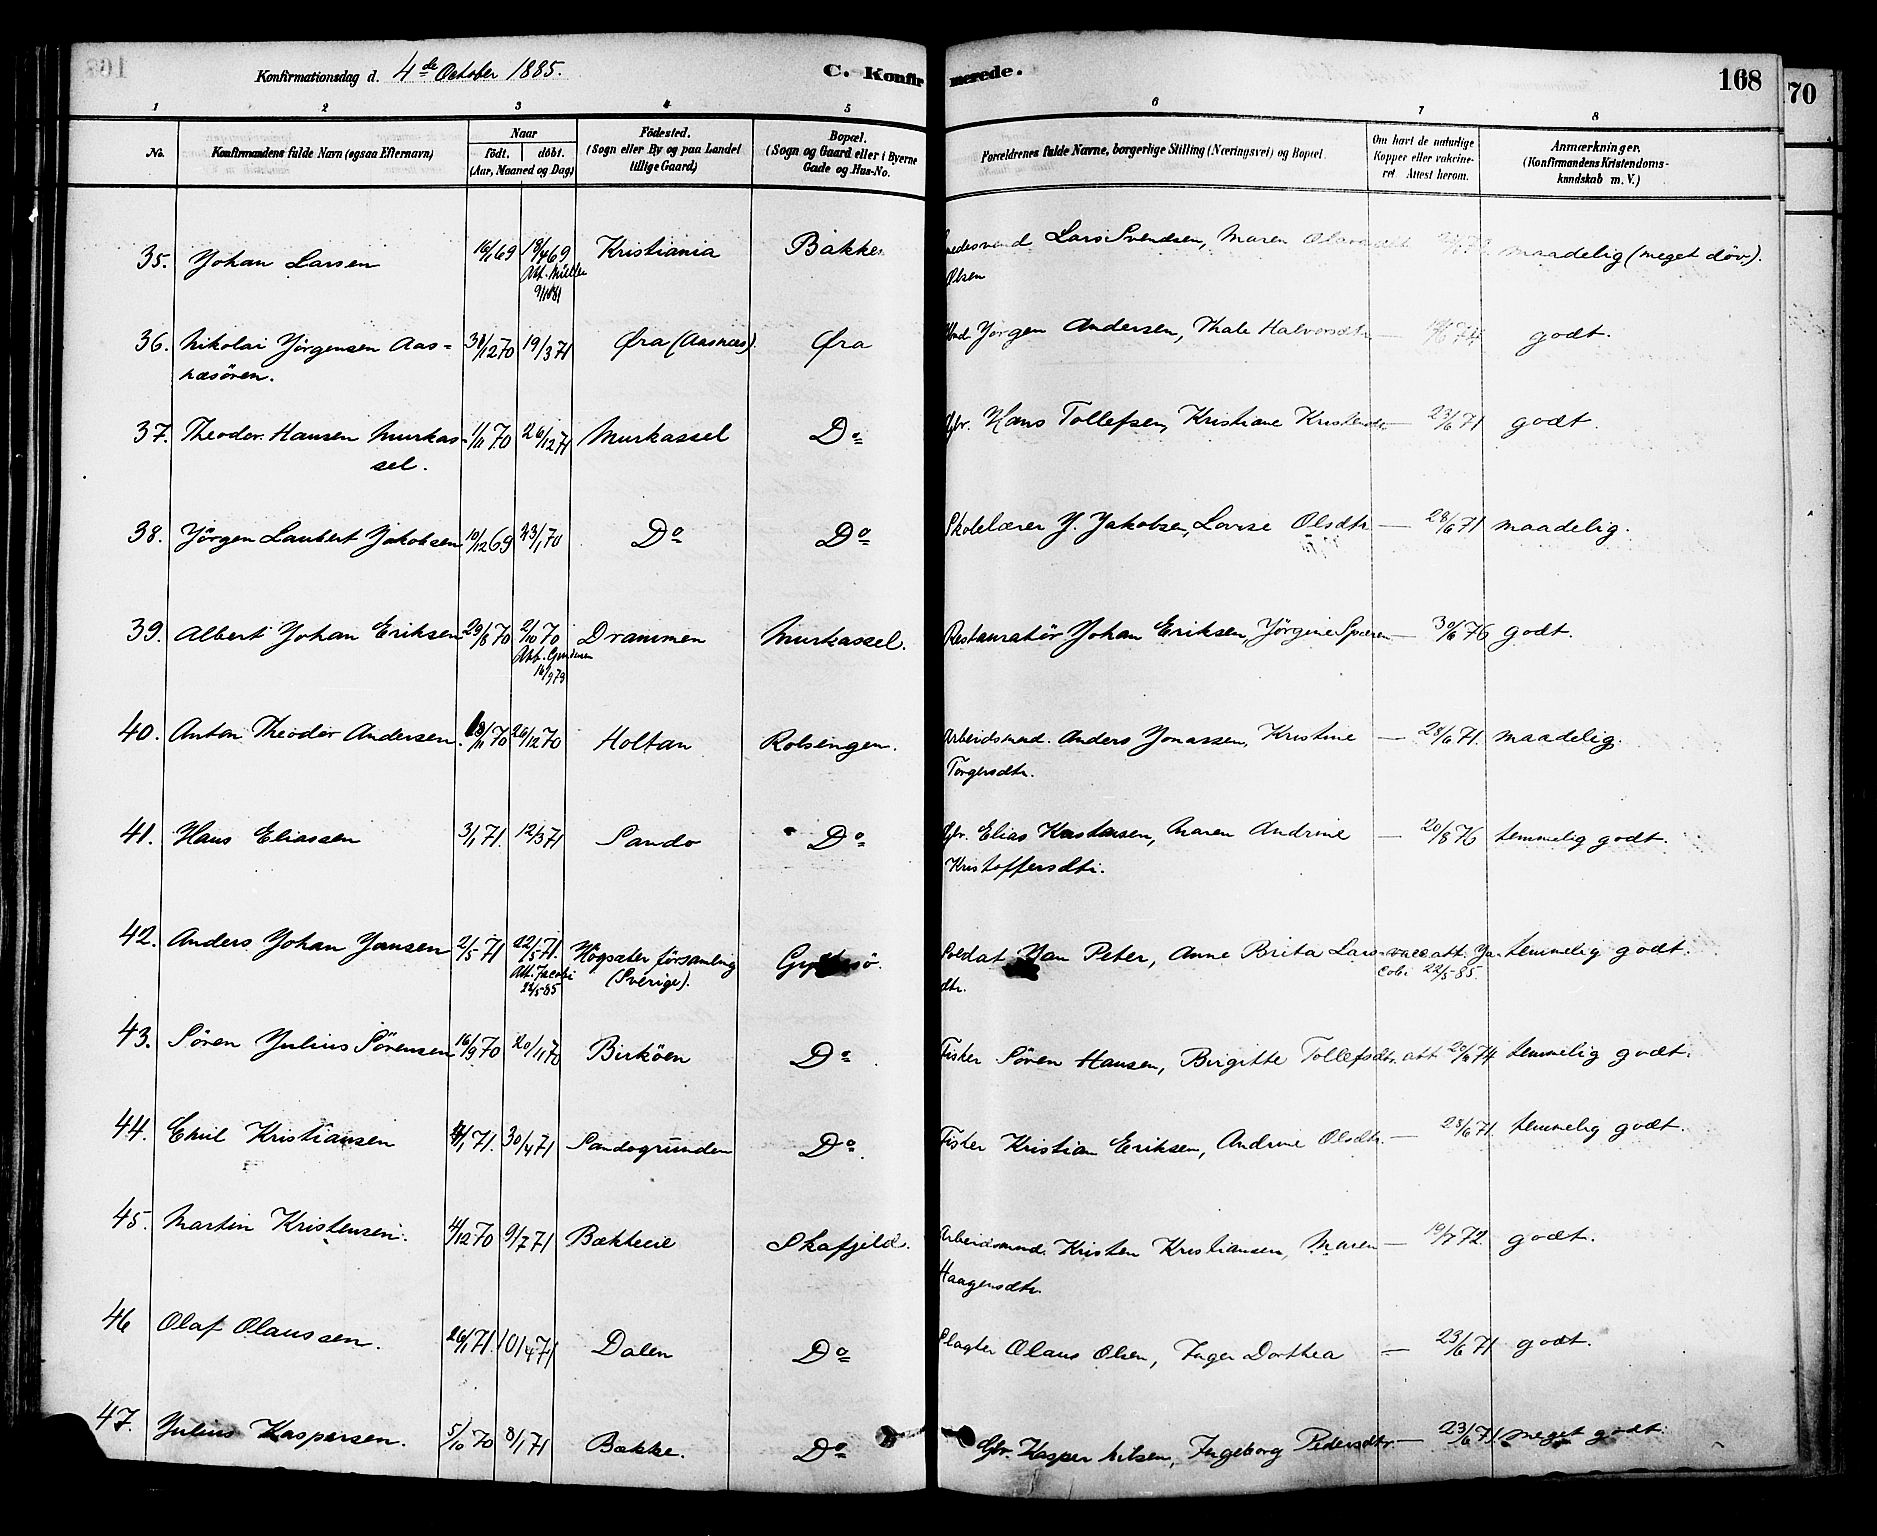 Konfirmationsdag d. 4de October 1885.
C. Konfirmerede.
168
70
1 2 3 4 5 6 7 8
No.
Konfirmandens fulde Navn (ogsaa Efternavn)
Naar
födt. döbt.
(Aar, Maaned og Dag)
Födested.
(Sogn eller By og paa Landet
tillige Gaard)
Bopæl.
(Sogn og Gaard eller i Byerne
Gade og Hus-No.
Forældrenes fulde Navne, borgerlige Stilling (Næringsvei) og Bopæl.
Om havt de naturlige
Kopper eller vakcine-
ret. Attest herom.
Anmærkninger.
(Konfirmandens Kristendoms-
kundskab m. V.)
35. Johan Larsen 16/1 69 18/4 69 Kristiania Bakke Lars Svendsen, Maren maadelig (meget döv).
Att. Müller Olsen
9/10 81
36. Nikolai Jörgensen Aas- 30/12 70 19/3 71 Øra (Aasnæs) Øra Jörgen Andersen, Thale Halvorsdtr — 74 godt.
næsören.
37. Theodor Hansen Murkas- 1/11 70 26/12 71 Murkassel Do Gbr. Hans Tollefsen, Kristiane Kristensdtr — 23/6 71 godt.
sel.
38. Jörgen Laubert Jakobsen 10/12 69 23/1 70 Do Do Skolelærer J. Jakobsen, Lovise Olsdtr — 28/6 71 maadelig.
39. Albert Johan Eriksen 29/8 70 2/10 70 Drammen Murkassel. Restauratör Johan Eriksen, Jörgine Sparen — 30/6 76 godt.
Att. Gundersen
16/9 79
40. Anton Theodor Andersen. 18/11 70 26/12 70 Holtan Rolsengen. Arbeidsmd. Anders Jonassen, Kristine — 28/6 71. maadelig.
Torgersdtr.
41. Hans Eliassen 3/1 71. 12/3 71 Sando Do Gbr. Elias Karstensen, Maren Andrine — 20/8 76 temmelig godt.
Kristoffersdtr.
42. Anders Johan Jansen 2/5 71 22/5 71. Högsäter församling Soldat Jan Peter, Anne Brita Lars- vacc. att. Ja- temmelig godt.
Att. Jacobi (Sverige). dtr. cobi 22/5-85.
22/5-85
43. Sören Julius Sörensen 16/9 70 20/11 70 Birköen Do Fisker Sören Hansen, Birgitte Tollefsdtr. att 74 temmelig godt.
44. Emil Kristiansen 4/1 71. 30/4 71 Sandogrunden Do. Fisker Kristian Eriksen, Andrine Olsdtr. — 28/6 71. temmelig godt.
45. Martin Kristensen. 4/12 70 9/7 71 Bækkeeie Skafjeld. Arbeidsmd. Kristen Kristiansen, Maren — 19/7 72. godt.
Haagensdtr.
46 Olaf Olaussen. 26/1 71. 10/4 71 Dalen Do Slagter Olaus Olsen, Inger Dorthea — 23/6 71 godt.
47. Julius Kaspersen. 5/10 70 8/1 71 Bakke. Do Gbr. Kasper Nilsen, Ingeborg Pedersdtr. — 23/6 71 meget godt.